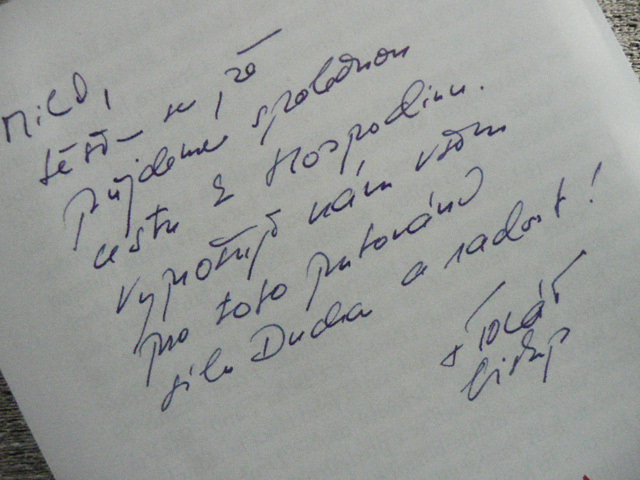 Milí,
těším se, že
půjdeme společnou
cestu s Hospodinem.
vyprošuji nám všem
pro toto putování
sílu Ducha a radost!
+ Tomáš
biskup